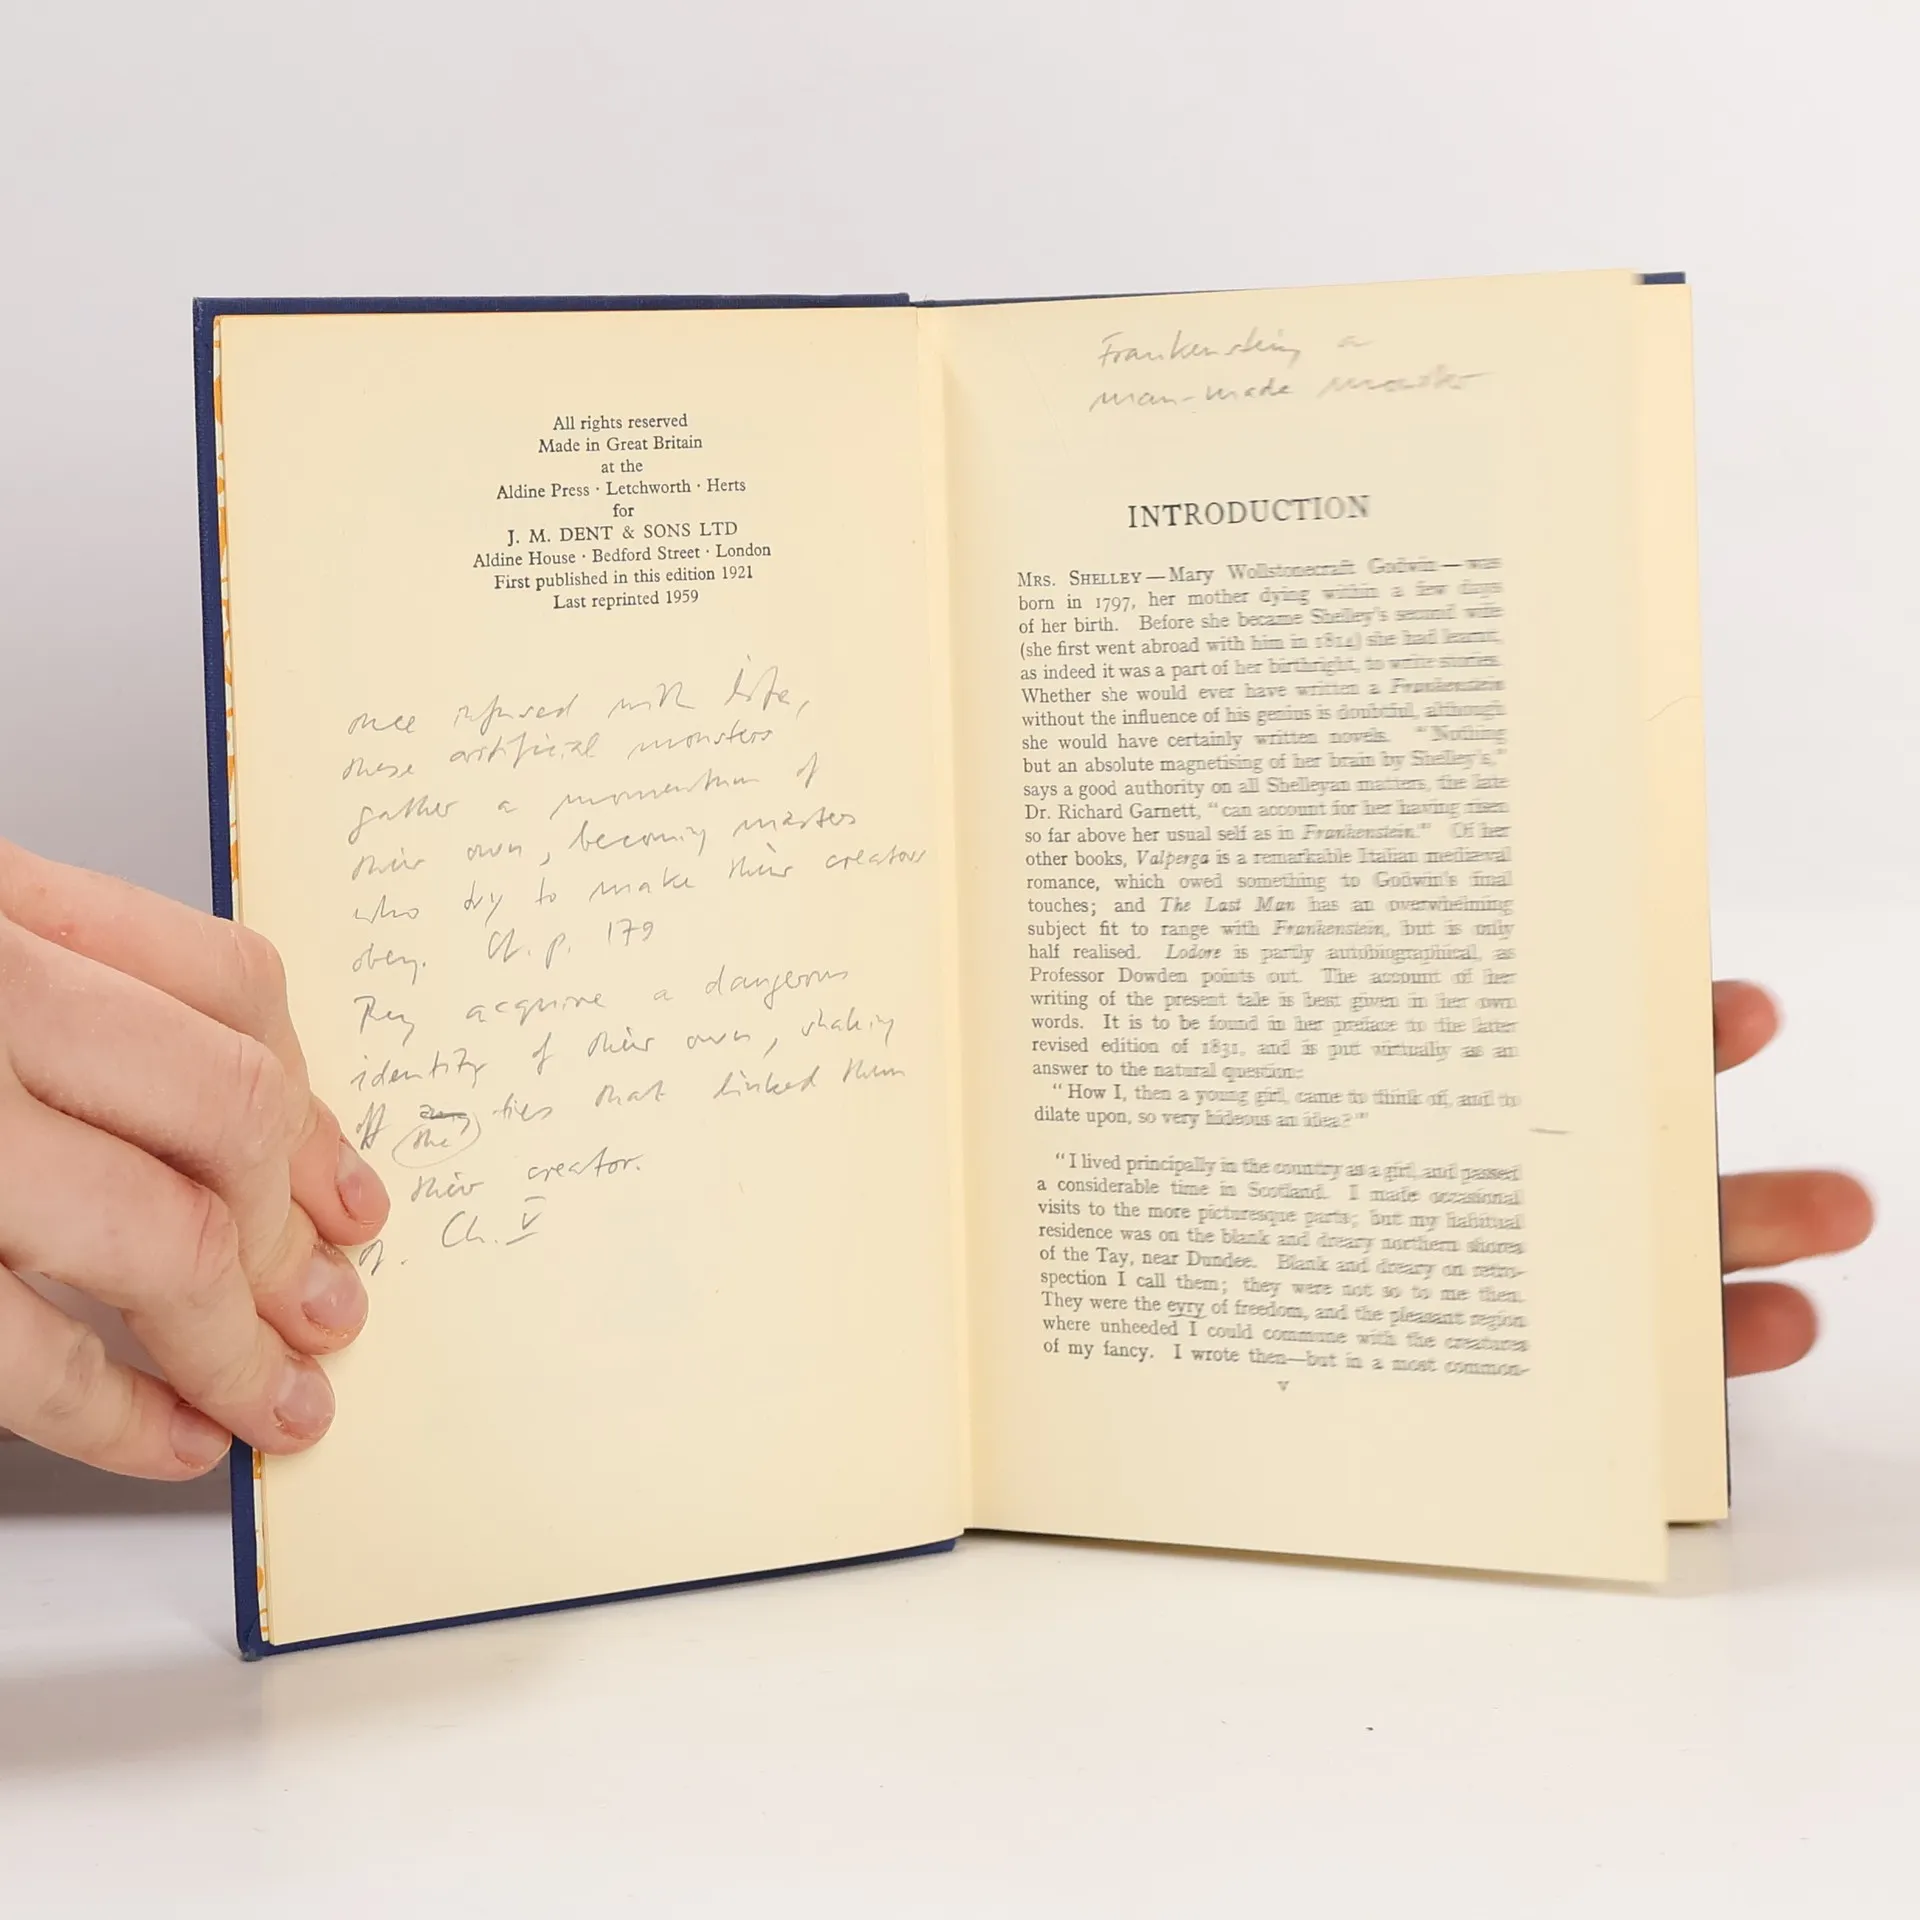 All rights reserved
Made in Great Britain
at the
Aldine Press · Letchworth · Herts
for
J. M. DENT & SONS LTD
Aldine House · Bedford Street · London
First published in this edition 1921
Last reprinted 1959
once infused with life,
these artificial monsters
gather a momentum of
their own, becoming masters
who try to make their creators
obey. Cf. p. 179
They acquire a dangerous
identity of their own, shaking
off ties that linked them
the
their creator.
cf. Ch. V
Frankenstein a
man-made monster
INTRODUCTION
MRS. SHELLEY—Mary Wollstonecraft Godwin—was
born in 1797, her mother dying within a few days
of her birth. Before she became Shelley's second wife
(she first went abroad with him in 1814) she had learnt,
as indeed it was a part of her birthright, to write stories.
Whether she would ever have written a Frankenstein
without the influence of his genius is doubtful, although
she would have certainly written novels. "Nothing
but an absolute magnetising of her brain by Shelley's,"
says a good authority on all Shelleyan matters, the late
Dr. Richard Garnett, "can account for her having risen
so far above her usual self as in Frankenstein." Of her
other books, Valperga is a remarkable Italian mediæval
romance, which owed something to Godwin's final
touches; and The Last Man has an overwhelming
subject fit to range with Frankenstein, but is only
half realised. Lodore is partly autobiographical, as
Professor Dowden points out. The account of her
writing of the present tale is best given in her own
words. It is to be found in her preface to the later
revised edition of 1831, and is put virtually as an
answer to the natural question:
"How I, then a young girl, came to think of, and to
dilate upon, so very hideous an idea?"
"I lived principally in the country as a girl, and passed
a considerable time in Scotland. I made occasional
visits to the more picturesque parts; but my habitual
residence was on the blank and dreary northern shores
of the Tay, near Dundee. Blank and dreary on retro-
spection I call them; they were not so to me then.
They were the eyry of freedom, and the pleasant region
where unheeded I could commune with the creatures
of my fancy. I wrote then—but in a most common-
v